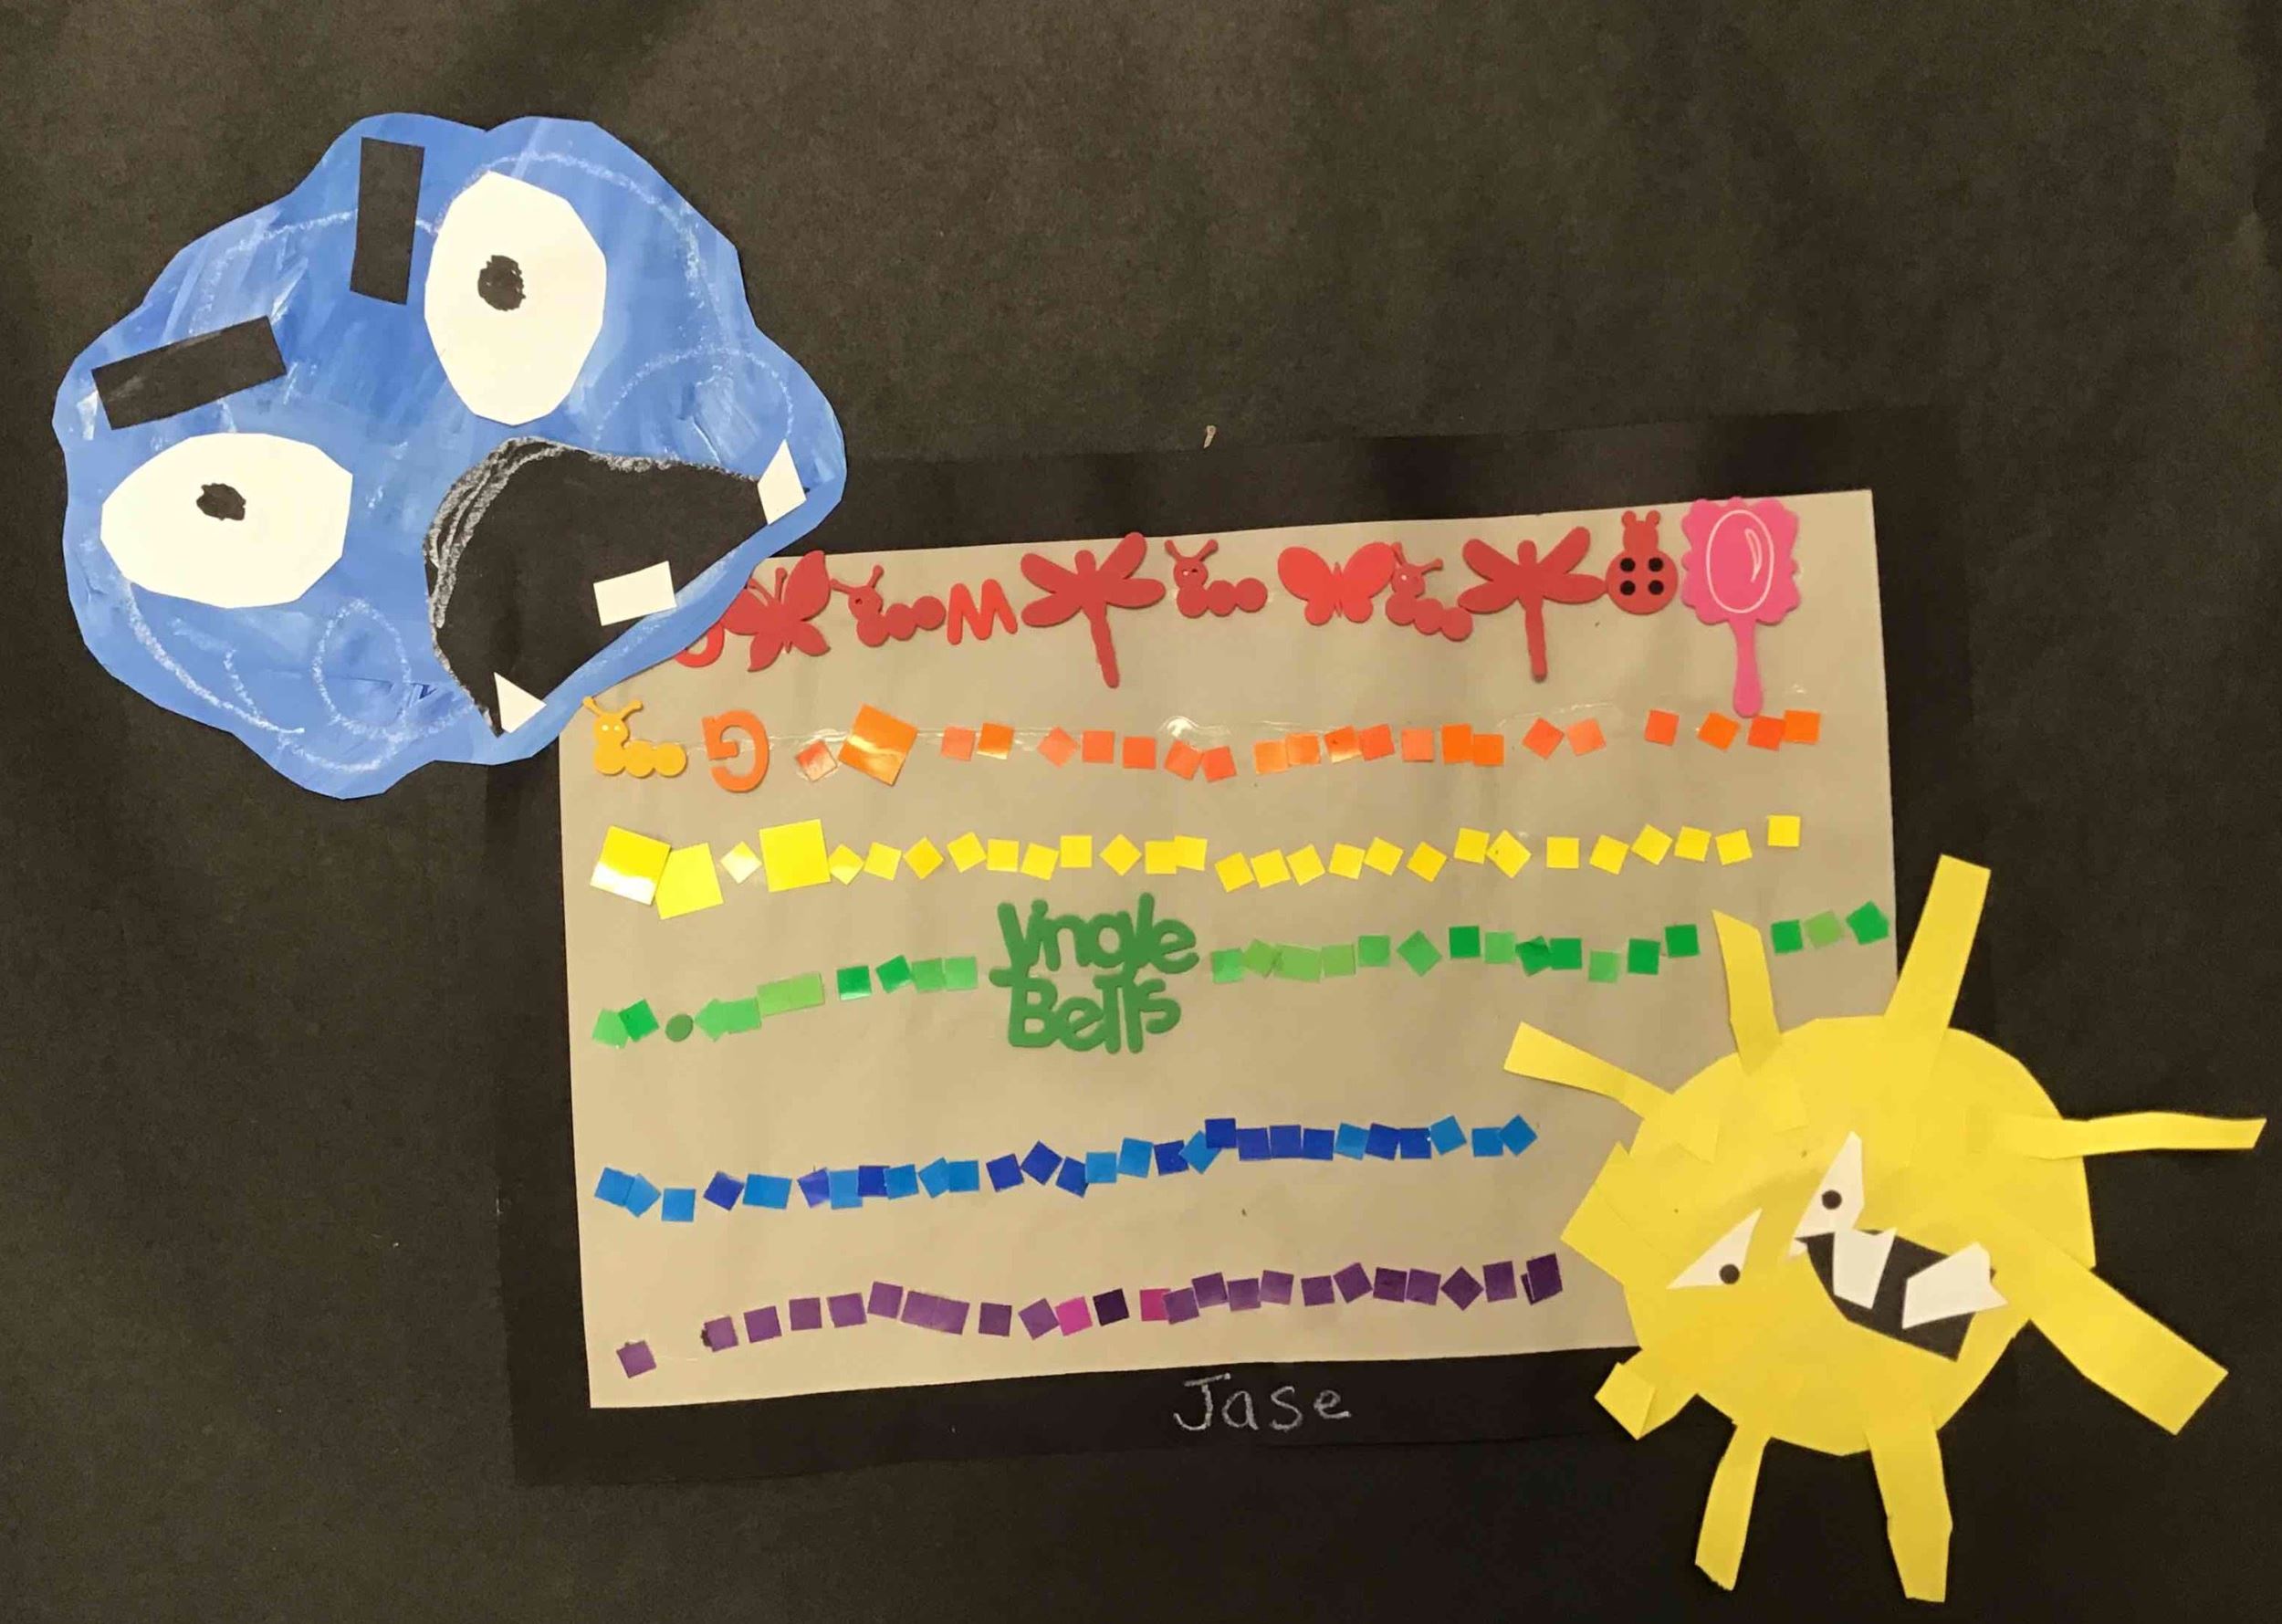 W
G
Jingle
Bells
Jase